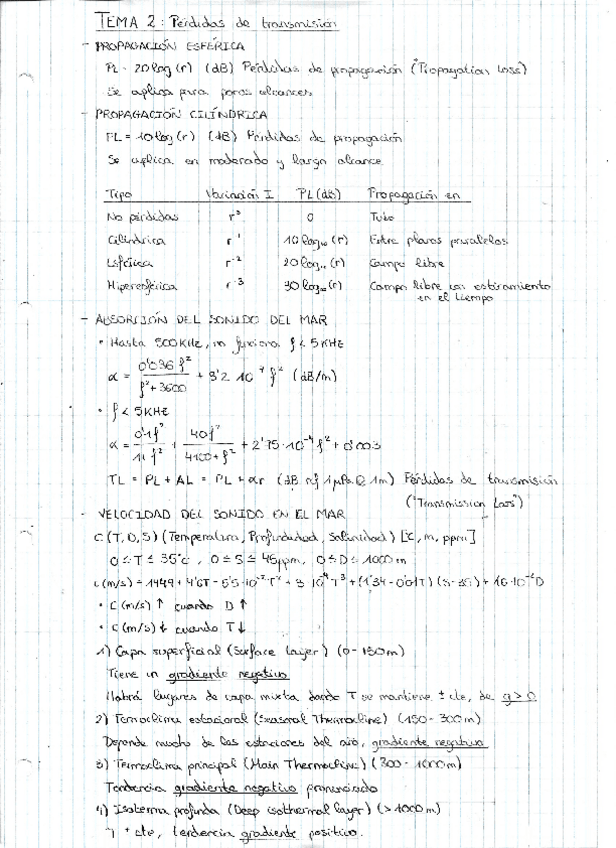 TEMA 2: Pérdidas de transmisión
- PROPAGACIÓN ESFÉRICA
PL = 20log(r) (dB) Pérdidas de propagación ("Propagation Loss)
Se aplica para pocos alcances
- PROPAGACIÓN CILÍNDRICA
PL = 10log(r) (dB) Pérdidas de propagación
Se aplica en moderado y largo alcance
Tipo Variación I PL(dB) Propagación en
No pérdidas r⁰ 0 Tubo
Cilíndrica r⁻¹ 10log₁₀(r) Entre planos paralelos
Esférica r⁻² 20log₁₀(r) Campo libre
Hiperesférica r⁻³ 30log₁₀(r) Campo libre con estiramiento
en el tiempo
- ABSORCIÓN DEL SONIDO DEL MAR
• Hasta 500KHz, no funciona f < 5KHz
α = 0'036f² / (f² + 3600) + 3'2 · 10⁻⁷ f² (dB/m)
• f < 5KHz
α = 0'1f² / (1+f²) + 40f² / (4100+f²) + 2'75·10⁻⁴ f² + 0'003
TL = PL + AL = PL + αr (dB ref 1μPa @ 1m) Pérdidas de transmisión
("Transmission Loss")
- VELOCIDAD DEL SONIDO EN EL MAR
C(T,D,S) (Temperatura, Profundidad, Salinidad) [ºC, m, ppm]
0 ≤ T ≤ 35ºC, 0 ≤ S ≤ 45ppm, 0 ≤ D ≤ 1000m
c(m/s) = 1449 + 4'6T - 5'5·10⁻²T² + 3·10⁻⁴T³ + (1'34 - 0'01T)(S-35) + 16·10⁻³D
• C(m/s) ↑ cuando D ↑
• C(m/s) ↓ cuando T ↓
1) Capa superficial (Surface Layer) (0-150m)
Tiene un gradiente negativo
Habrá lugares de capa mixta donde T se mantiene ± cte, de g > 0
2) Termoclina estacional (Seasonal Thermocline) (150-300m)
Depende mucho de las estaciones del año, gradiente negativo
3) Termoclina principal (Main Thermocline) (300-1000m)
Tendencia gradiente negativo pronunciado
4) Isoterma profunda (Deep isothermal layer) (>1000m)
T ± cte, tendencia gradiente positivo.